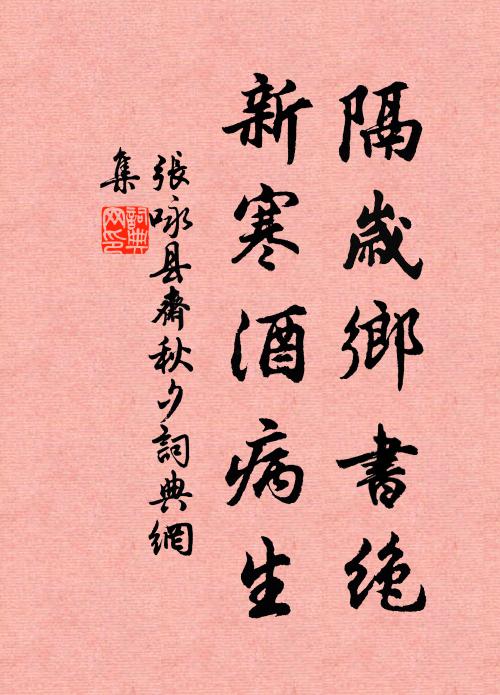 隔歲鄉書绝
新寒酒病生
張咏县齋秋夕詞典網
集
詞典網印